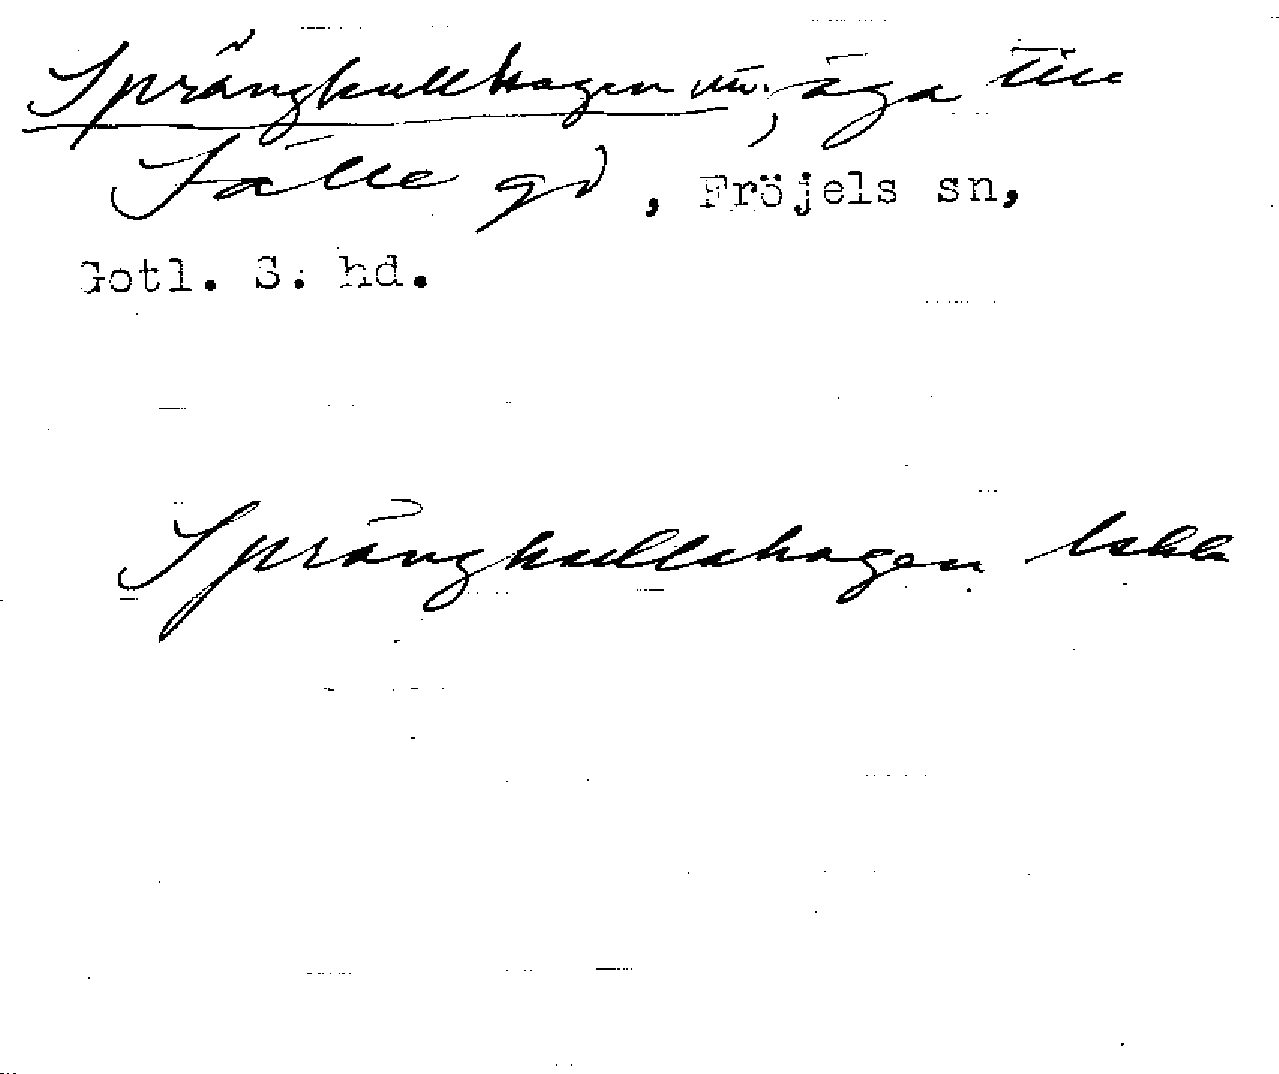 Sprängkullhagen m., äga till
Sälle gd, Fröjels sn,
Gotl. S. hd.
Sprängkullshagen